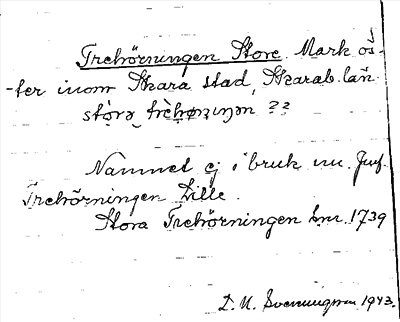 Trehörningen Store. Mark ös-
-ter inom Skara stad, Skarab. län.
stóra trèhøʀnıŋən ??
Namnet ej i bruk nu. Jmf.
Trehörningen Lille.
Stora Trehörningen Lm. 1739
D. N. Svenningsson 1943.